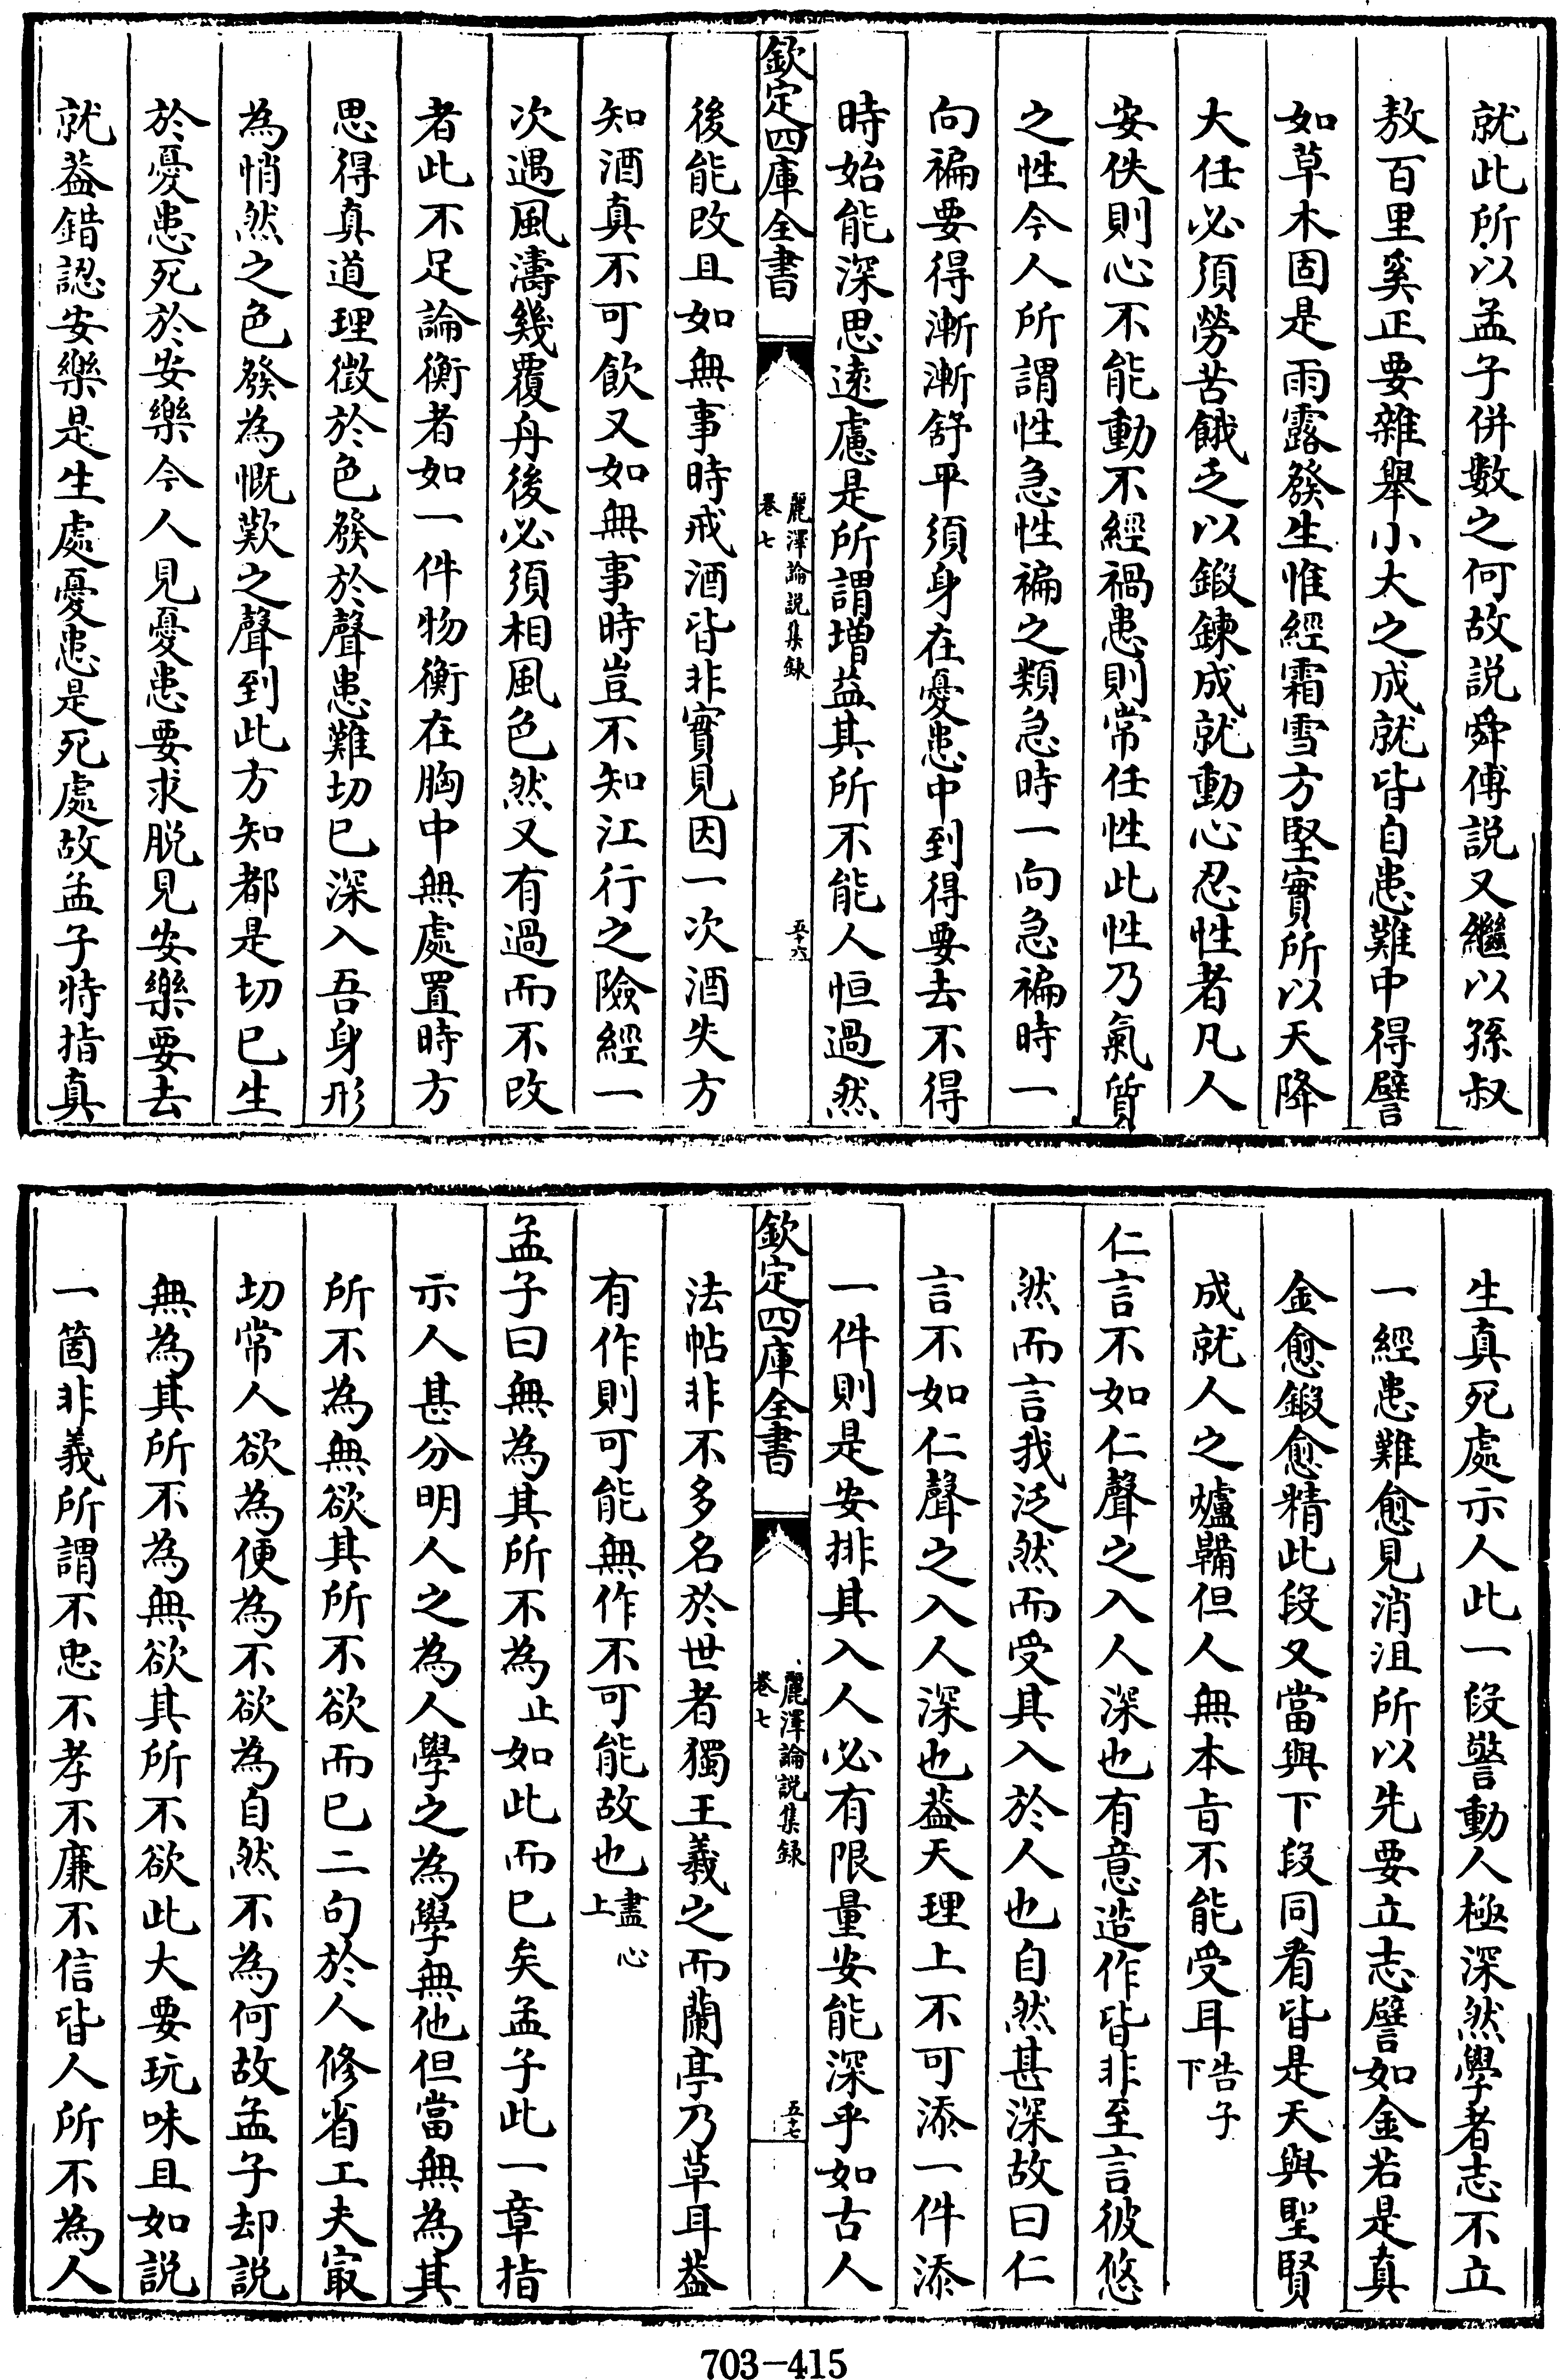 就此所以孟子併數之何故説舜傅説又繼以孫叔
敖百里奚正要雜舉小大之成就皆自患難中得譬
如草木固是雨露發生惟經霜雪方堅實所以天降
大任必須勞苦餓乏以鍜鍊成就動心忍性者凡人
安佚則心不能動不經禍患則常任性此性乃氣質
之性今人所謂性急性褊之類急時一向急褊時一
向褊要得漸漸舒平須身在憂患中到得要去不得
時始能深思逺慮是所謂増益其所不能人恒過然
欽定四庫全書
麗澤論説集録
卷七
五十六
後能改且如無事時戒酒皆非實見因一次酒失方
知酒真不可飲又如無事時豈不知江行之險經一
次遇風濤幾覆舟後必須相風色然又有過而不改
者此不足論衡者如一件物衡在胸中無處置時方
思得真道理徴於色發於聲患難切已深入吾身形
為悄然之色發為慨歎之聲到此方知都是切已生
於憂患死於安樂今人見憂患要求脱見安樂要去
就葢錯認安樂是生處憂患是死處故孟子特指真
生真死處示人此一段警動人極深然學者志不立
一經患難愈見消沮所以先要立志譬如金若是真
金愈鍜愈精此段又當與下段同看皆是天與聖賢
成就人之爐鞴但人無本㫖不能受耳告子下
仁言不如仁聲之入人深也有意造作皆非至言彼悠
然而言我泛然而受其入於人也自然甚深故曰仁
言不如仁聲之入人深也葢天理上不可添一件添
一件則是安排其入人必有限量安能深乎如古人
欽定四庫全書
麗澤論説集録
卷七
五十七
法帖非不多名於世者獨王羲之而蘭亭乃草耳葢
有作則可能無作不可能故也盡心上
孟子曰無為其所不為止如此而已矣孟子此一章指
示人甚分明人之為人學之為學無他但當無為其
所不為無欲其所不欲而已二句於人修省工夫㝡
切常人欲為便為不欲為自然不為何故孟子却説
無為其所不為無欲其所不欲此大要玩味且如説
一箇非義所謂不忠不孝不廉不信皆人所不為人
703-415